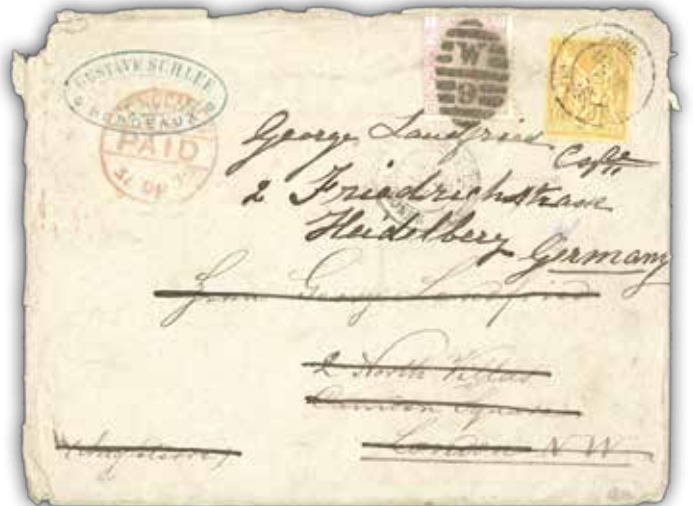 GUSTAVE SCHLEE
BORDEAUX
PAID
W
9
George Landfried
2 Friedrichstrasse
Heidelberg
Germany
Herrn George Landfried
2 North Villas
Camden Square
London N W